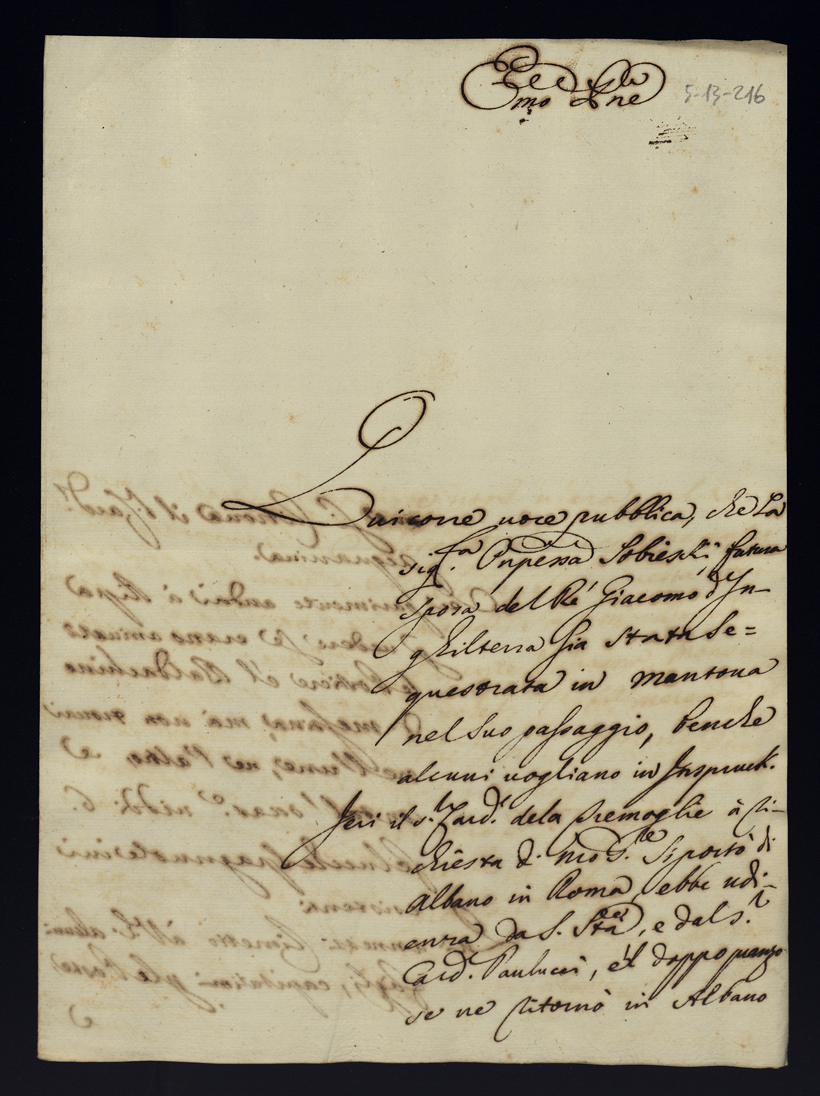 Emo Pne
5-13-216
Qui corre voce pubblica, che La
sigra. Pnpessa Sobieski futura
sposa del Ré Giacomo d'In-
ghilterra sia stata se=
questrata in mantova
nel suo passaggio, benche
alcuni vogliano in Inspruck.
Jeri il s.r Card. dela Tremoglie à ri-
chiesta di Mo S.re si portò di
Albano in Roma, ebbe udi-
enza da S. Sta, e dal s.r
Card. Paulucci, e il doppo pranzo
se ne ritornò in Albano